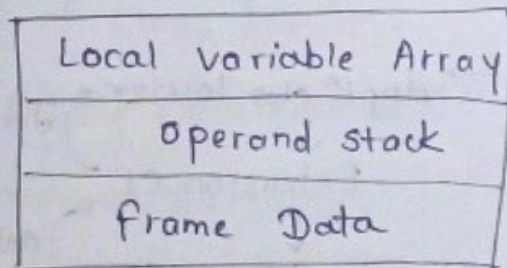 Local variable Array
operand stack
frame Data